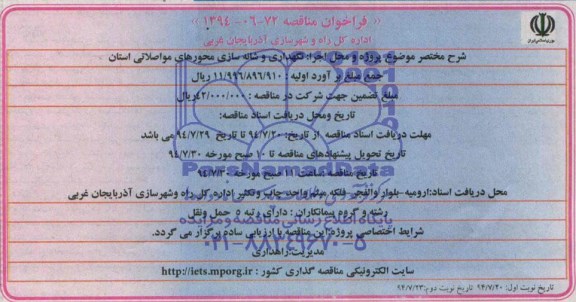 « فراخوان مناقصه ۷۲-۰۶-۱۳۹۴ »
اداره کل راه و شهرسازی آذربایجان غربی
شرح مختصر موضوع، پروژه و محل اجرا: نگهداری و شانه سازی محورهای مواصلاتی استان
جمع مبلغ بر آورد اولیه : ۱۱/۹۹۶/۸۹۶/۹۱۰ ریال
مبلغ تضمین جهت شرکت در مناقصه : ۴۲/۰۰۰/۰۰۰ریال
تاریخ ومحل دریافت اسناد مناقصه:
مهلت دریافت اسناد مناقصه از تاریخ: ۹۴/۷/۲۰ تا تاریخ ۹۴/۷/۲۹ می باشد
تاریخ تحویل پیشنهادهای مناقصه تا ۱۰ صبح مورخه ۹۴/۷/۳۰
تاریخ مناقصه ساعت ۱۱ صبح مورخه ۹۴/۷/۳۰
ParsNamadData
محل دریافت اسناد:ارومیه -بلوار والفجر -فلکه میثم واحد چاپ وتکثیر اداره کل راه وشهرسازی آذربایجان غربی
رشته و گروه پیمانکاران : دارای رتبه ۵ حمل ونقل
پایگاه اطلاع رسانی مناقصه و مزایده
شرایط اختصاصی پروژه: این مناقصه با ارزیابی ساده برگزار می گردد.
۰۲۱-۸۸۳۴۹۶۷۰-۵
مدیریت:راهداری
سایت الکترونیکی مناقصه گذاری کشور : http://iets.mporg.ir
تاریخ نوبت اول: ۹۴/۷/۲۰ تاریخ نوبت دوم: ۹۴/۷/۲۳